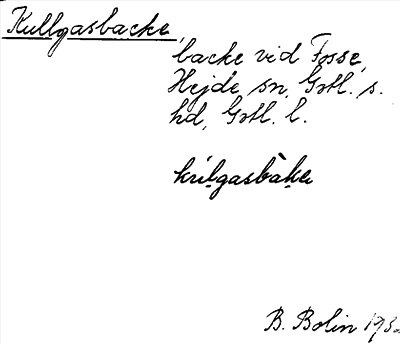 Kullgasbacke,
backe vid Fosse,
Hejde sn, Gotl. s.
hd, Gotl. l.
B. Bolin